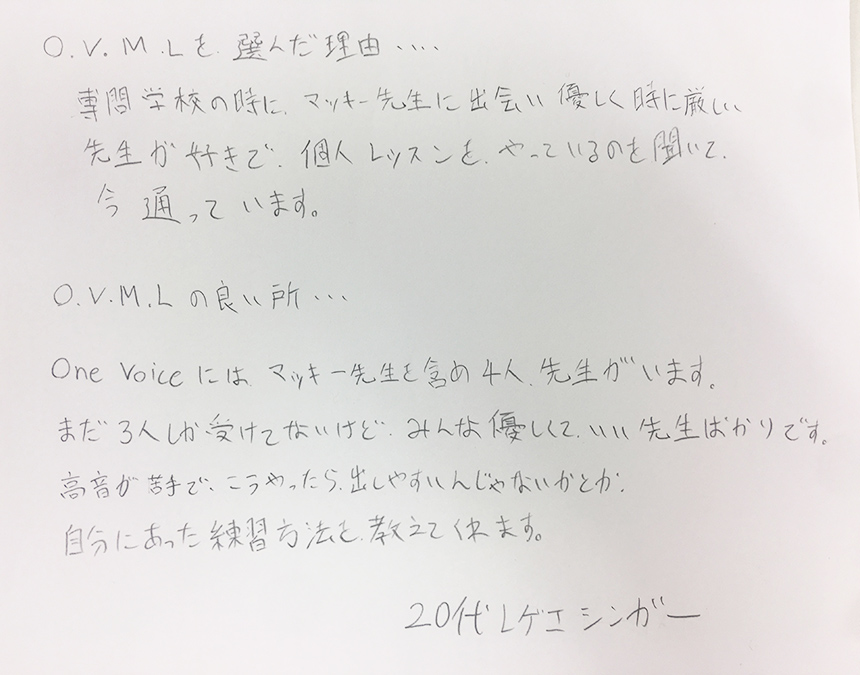 O.V.M.Lを、選んだ理由‥‥
専門学校の時に、マッキー先生に出会い優しく時に厳しい
先生が好きで、個人レッスンを、やっているのを聞いて、
今通っています。
O.V.M.Lの良い所‥・
One Voiceには、マッキー先生を含め4人、先生がいます。
まだ3人しか受けてないけど、みんな優しくて、いい先生ばかりです。
高音が苦手で、こうやったら、出しやすいんじゃないかとか、
自分にあった練習方法を、教えてくれます。
20代レゲエシンガー